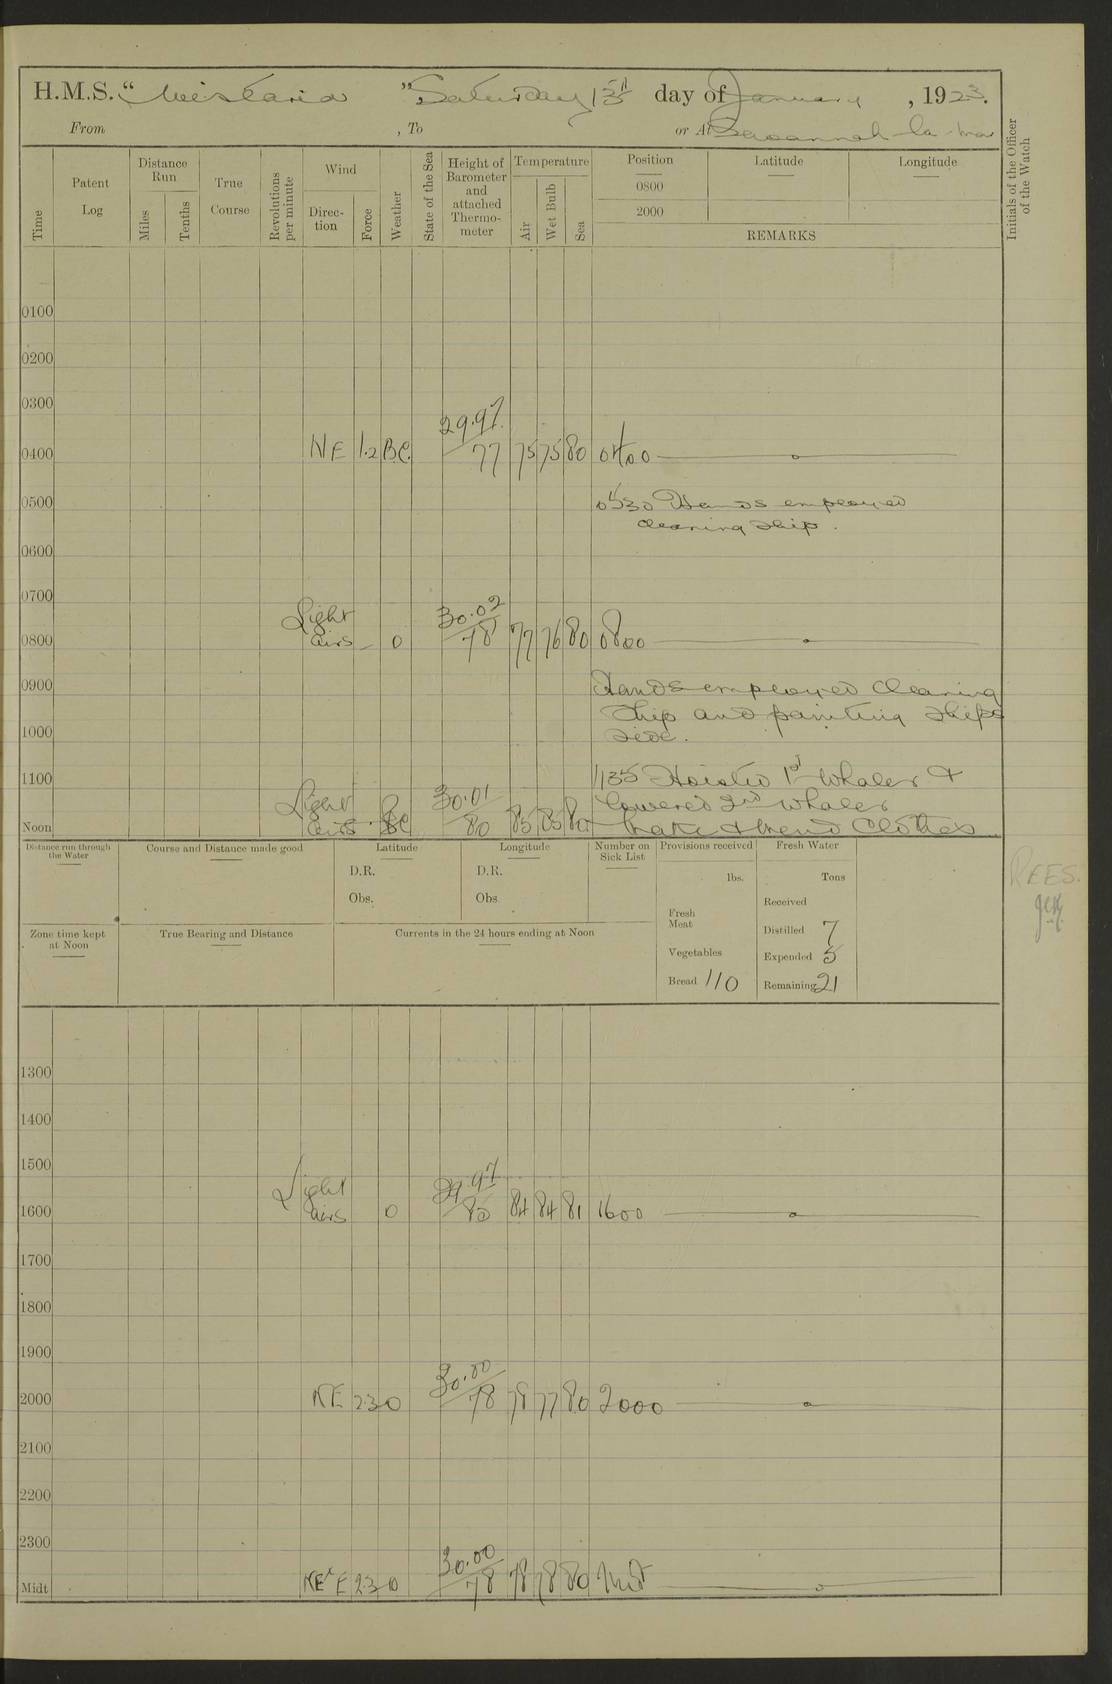 H.M.S. “ Wistaria ” Saturday 13th day of January , 1923.
From , To or At Savannah la Mar
Time
Patent Log
Distance Run
Miles
Tenths
True Course
Revolutions per minute
Wind
Direc-tion
Force
Weather
State of the Sea
Height of Barometer and attached Thermo-meter
Temperature
Air
Wet Bulb
Sea
Position
0800
2000
Latitude
Longitude
REMARKS
Initials of the Officer of the Watch
0100
0200
0300
29.97
0400 NE 1.2 BC. 77 75 75 80 0400
0500 0530 Hands employed
cleaning ship.
0600
0700
Light 30.02
0800 airs - 0 78 77 76 80 0800
0900 Hands employed cleaning
ship and painting ships
1000 side.
1100 1135 Hoisted 1st Whaler &
Light 30.01 lowered 2nd Whaler
Noon airs BC 80 85 85 80 Make & mend Clothes
Distance run through the Water
Course and Distance made good
Latitude
D.R.
Obs.
Longitude
D.R.
Obs
Number on Sick List
Provisions received
lbs.
Fresh Meat
Vegetables
Bread 110
Fresh Water
Tons
Received
Distilled 7
Expended 5
Remaining 21
REES.
Zone time kept at Noon
True Bearing and Distance
Currents in the 24 hours ending at Noon
1300
1400
1500
Light 29.97
1600 airs 0 80 84 84 81 1600
1700
1800
1900
30.00
2000 NE 2.3 0 78 78 77 80 2000
2100
2200
2300
30.00
Midt NE'E 2.3 0 78 78 78 80 Mid